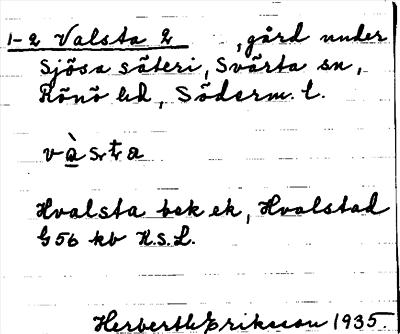 1-2 Valsta 2, gård under
Sjösa säteri, Svärta sn,
Rönö hd, Söderm. l.
và sṭ a
Hvalsta bek ek, Hvalstad
G56 kb K.S.L.
Herberth Eriksson 1935.